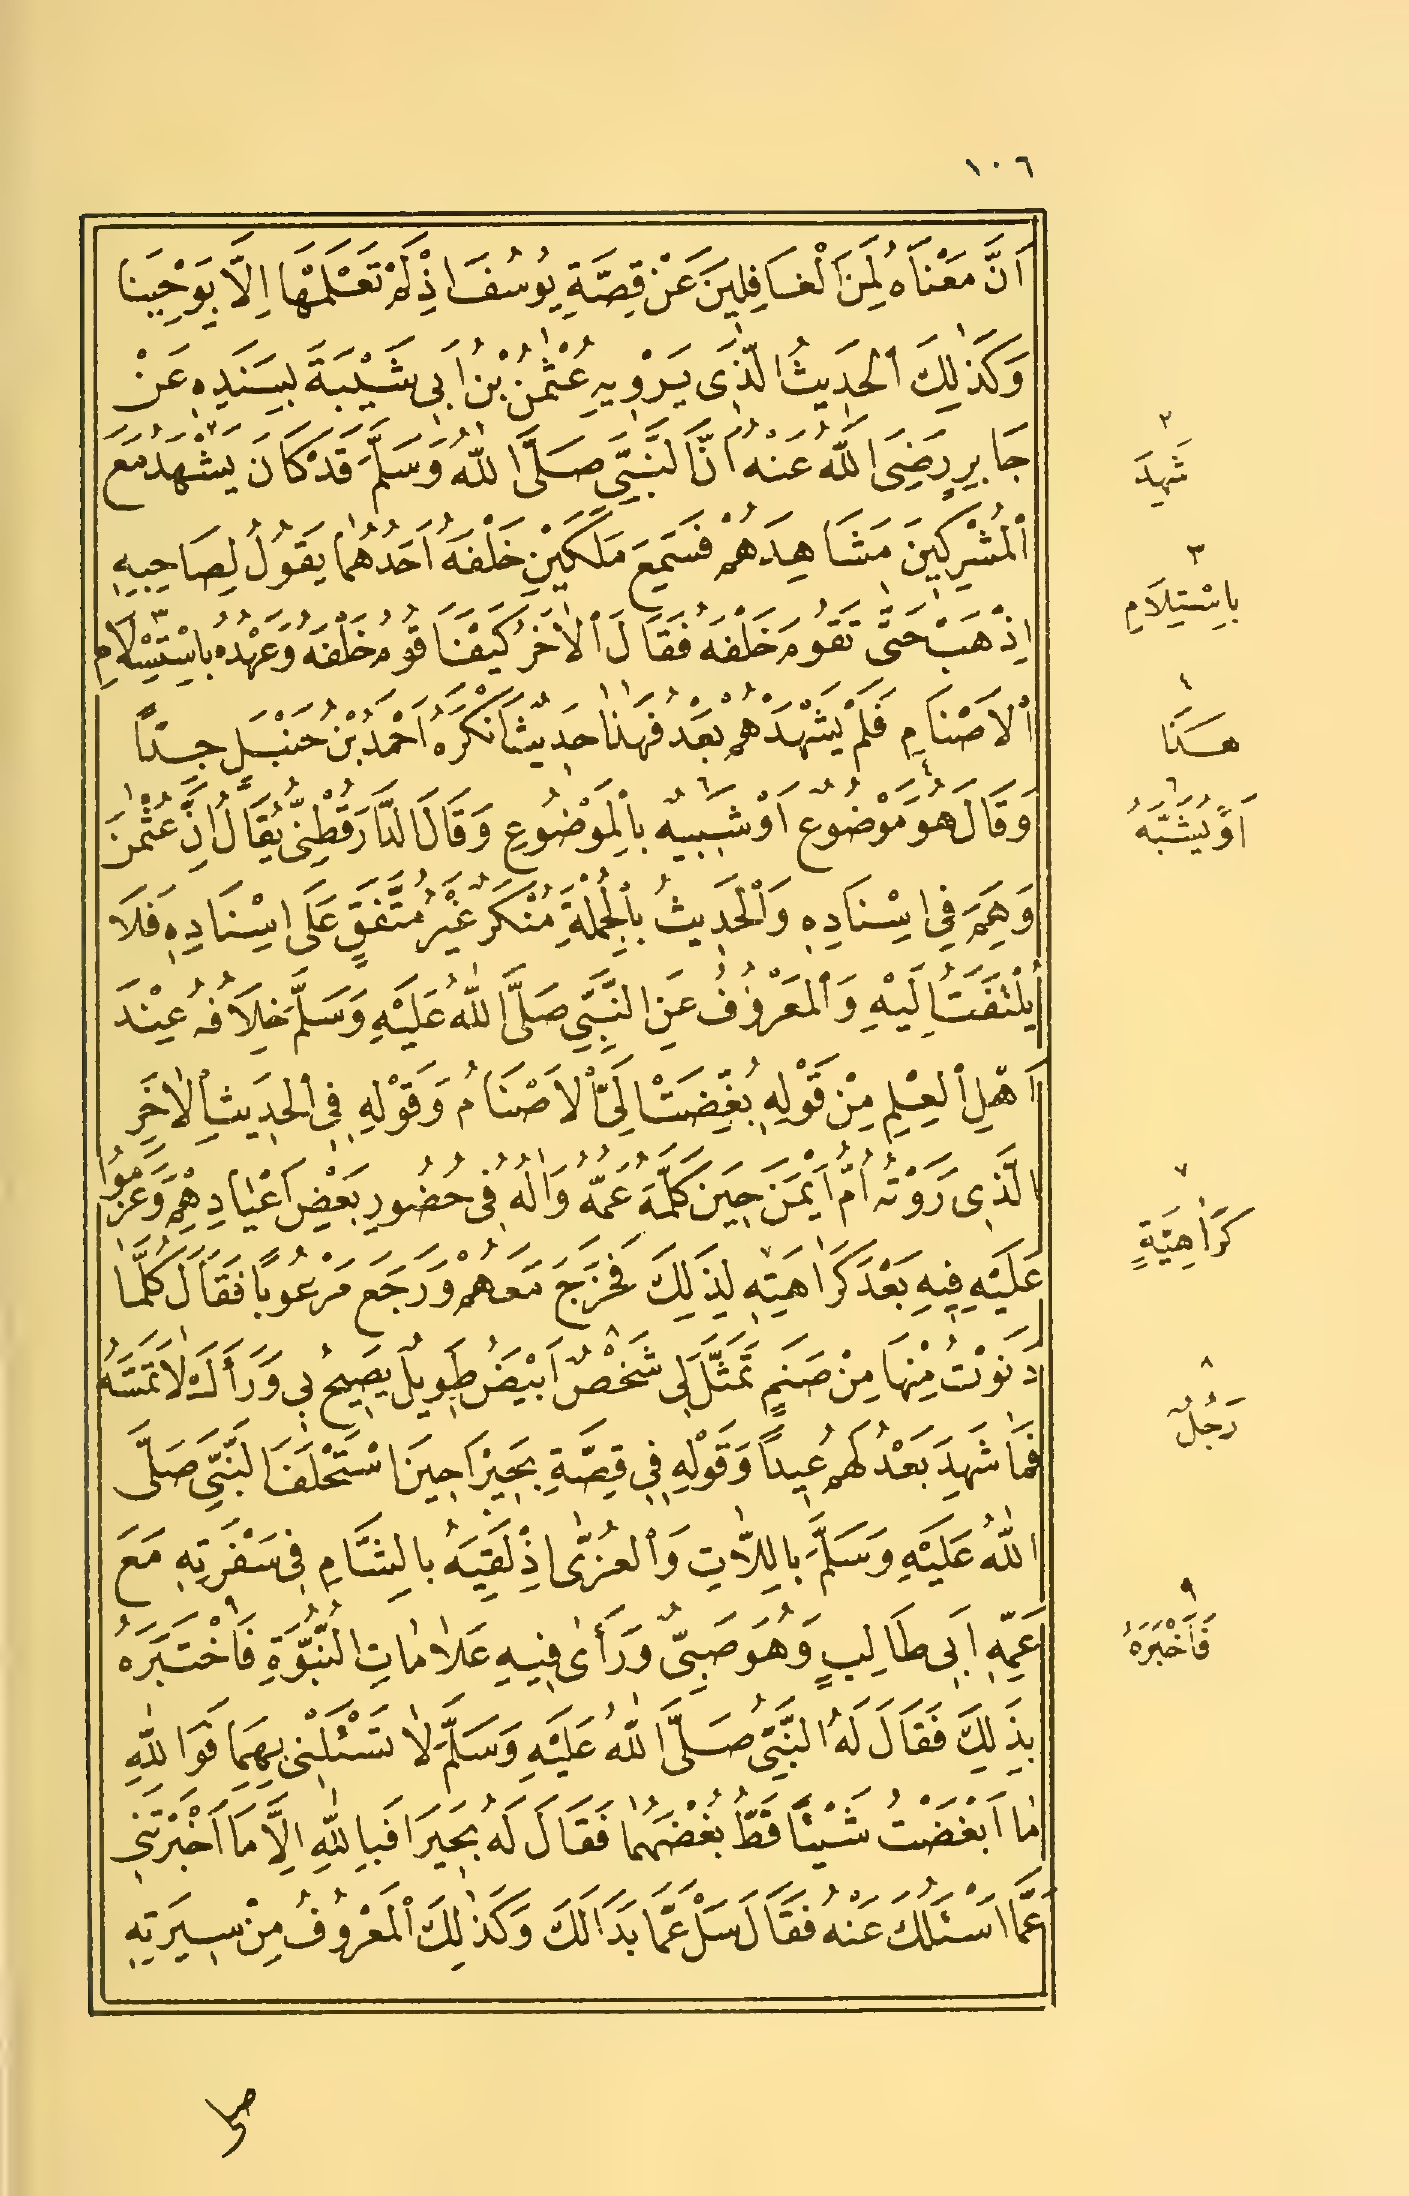 ١٠٦
اَنَّ مَعْنَاهُ لَمِنَ الْغَافِلِينَ عَنْ قِصَّةِ يُوسُفَ اِذْ لَمْ تَعْلَمْهَا اِلَّا بِوَحْيِنَا
وَكَذٰلِكَ الْحَدِيثُ الَّذِى يَرْوِيهِ عُثْمٰنُ بْنُ اَبِى شَيْبَةَ بِسَنَدِهِ عَنْ
جَابِرٍ رَضِىَ اللهُ عَنْهُ اَنَّ النَّبِىَّ صَلَّى اللهُ وَسَلَّمَ قَدْ كَانَ يَشْهَدُ ٢ مَعَ
الْمُشْرِكِينَ مَشَاهِدَهُمْ فَسَمِعَ مَلَكَيْنِ خَلْفَهُ اَحَدُهُمَا يَقُولُ لِصَاحِبِهِ
اِذْهَبْ حَتَّى تَقُومَ خَلْفَهُ فَقَالَ الْاٰخَرُ كَيْفَ اَقُومُ خَلْفَهُ وَعَهْدُهُ بِاسْتِسْلَامِ ٣
الْاَصْنَامِ فَلَمْ يَشْهَدْهُمْ بَعْدُ فَهٰذَا حَدِيثٌ اَنْكَرَهُ اَحْمَدُ بْنُ حَنْبَلٍ جِدًّا
وَقَالَ هُوَ ٤ مَوْضُوعٌ اَوْ شَبِيهٌ ٦ بِالْمَوْضُوعِ وَقَالَ الدَّارَقُطْنِىُّ يُقَالُ اِنَّ عُثْمٰنَ
وَهِمَ فِى اِسْنَادِهِ وَالْحَدِيثُ بِالْجُمْلَةِ مُنْكَرٌ غَيْرُ مُتَّفَقٍ عَلَى اِسْنَادِهِ فَلَا
يُلْتَفَتُ اِلَيْهِ وَالْمَعْرُوفُ عَنِ النَّبِىِّ صَلَّى اللهُ عَلَيْهِ وَسَلَّمَ خِلَافُهُ عِنْدَ
اَهْلِ الْعِلْمِ مِنْ قَوْلِهِ بُغِّضَتْ اِلَىَّ الْاَصْنَامُ وَقَوْلِهِ فِى الْحَدِيثِ الْاٰخَرِ
الَّذِى رَوَتْهُ اُمُّ اَيْمَنَ حِينَ كَلَّمَهُ عَمُّهُ وَاٰلُهُ فِى حُضُورِ بَعْضِ اَعْيَادِهِمْ وَعَزَمُوا
عَلَيْهِ فِيهِ بَعْدَ كَرَاهَتِهِ ٧ لِذٰلِكَ فَخَرَجَ مَعَهُمْ وَرَجَعَ مَرْعُوبًا فَقَالَ كُلَّمَا
دَنَوْتُ مِنْهَا مِنْ صَنَمٍ تَمَثَّلَ لِى شَخْصٌ ٨ اَبْيَضُ طَوِيلٌ يَصِيحُ بِى وَرَاءَكَ لَا تَمَسَّهُ
فَمَا شَهِدَ بَعْدُ لَهُمْ عِيدًا وَقَوْلِهِ فِى قِصَّةِ بَحِيرَا حِينَ اسْتَحْلَفَ النَّبِىَّ صَلَّى
اللهُ عَلَيْهِ وَسَلَّمَ بِاللَّاتِ وَالْعُزّٰى اِذْ لَقِيَهُ بِالشَّامِ فِى سَفْرَتِهِ مَعَ
عَمِّهِ اَبِى طَالِبٍ وَهُوَ صَبِىٌّ وَرَأَى فِيهِ عَلَامَاتِ النُّبُوَّةِ فَاخْتَبَرَهُ ٩
بِذٰلِكَ فَقَالَ لَهُ النَّبِىُّ صَلَّى اللهُ عَلَيْهِ وَسَلَّمَ لَا تَسْئَلْنِى بِهِمَا فَوَاللهِ
مَا اَبْغَضْتُ شَيْئًا قَطُّ بُغْضَهُمَا فَقَالَ لَهُ بَحِيرَا فَبِاللهِ اِلَّا مَا اَخْبَرْتَنِى
عَمَّا اَسْئَلُكَ عَنْهُ فَقَالَ سَلْ عَمَّا بَدَا لَكَ وَكَذٰلِكَ الْمَعْرُوفُ مِنْ سِيرَتِهِ
٢
شَهِدَ
٣
بِاسْتِلَامِ
٤
هٰذَا
٦
اَوْ يُشَبَّهُ
٧
كَرَاهِيَةٍ
٨
رَجُلٌ
٩
فَاَخْبَرَهُ